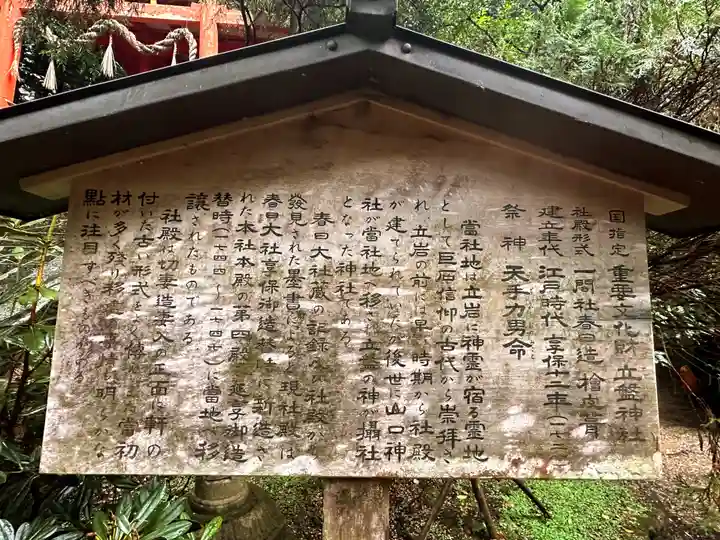 国指定 重要文化財 立磐神社
社殿形式 一間社春日造 檜皮葺
建立年代 江戸時代 享保十二年(一七二
祭神 天手力男命
當社地は立岩に神霊が宿る霊地
として巨石信仰の古代から崇拝さ
れ、立岩の前には早い時期から社殿
が建てられていたが後世に山口神
社が當社地へ移され立磐の神が攝社
となった神社である。
春日大社蔵の記録や社殿から
發見された墨書によると現社殿は
春日大社享保御造替時に新造さ
れた本社本殿の第四殿で延享御造
替時(一七四四~一七四七)に當地へ移
譲されたものである。
社殿は切妻造妻入の正面に軒の
付いた古い形式をもち
材が多く残り 明らかな
點に注目すべき